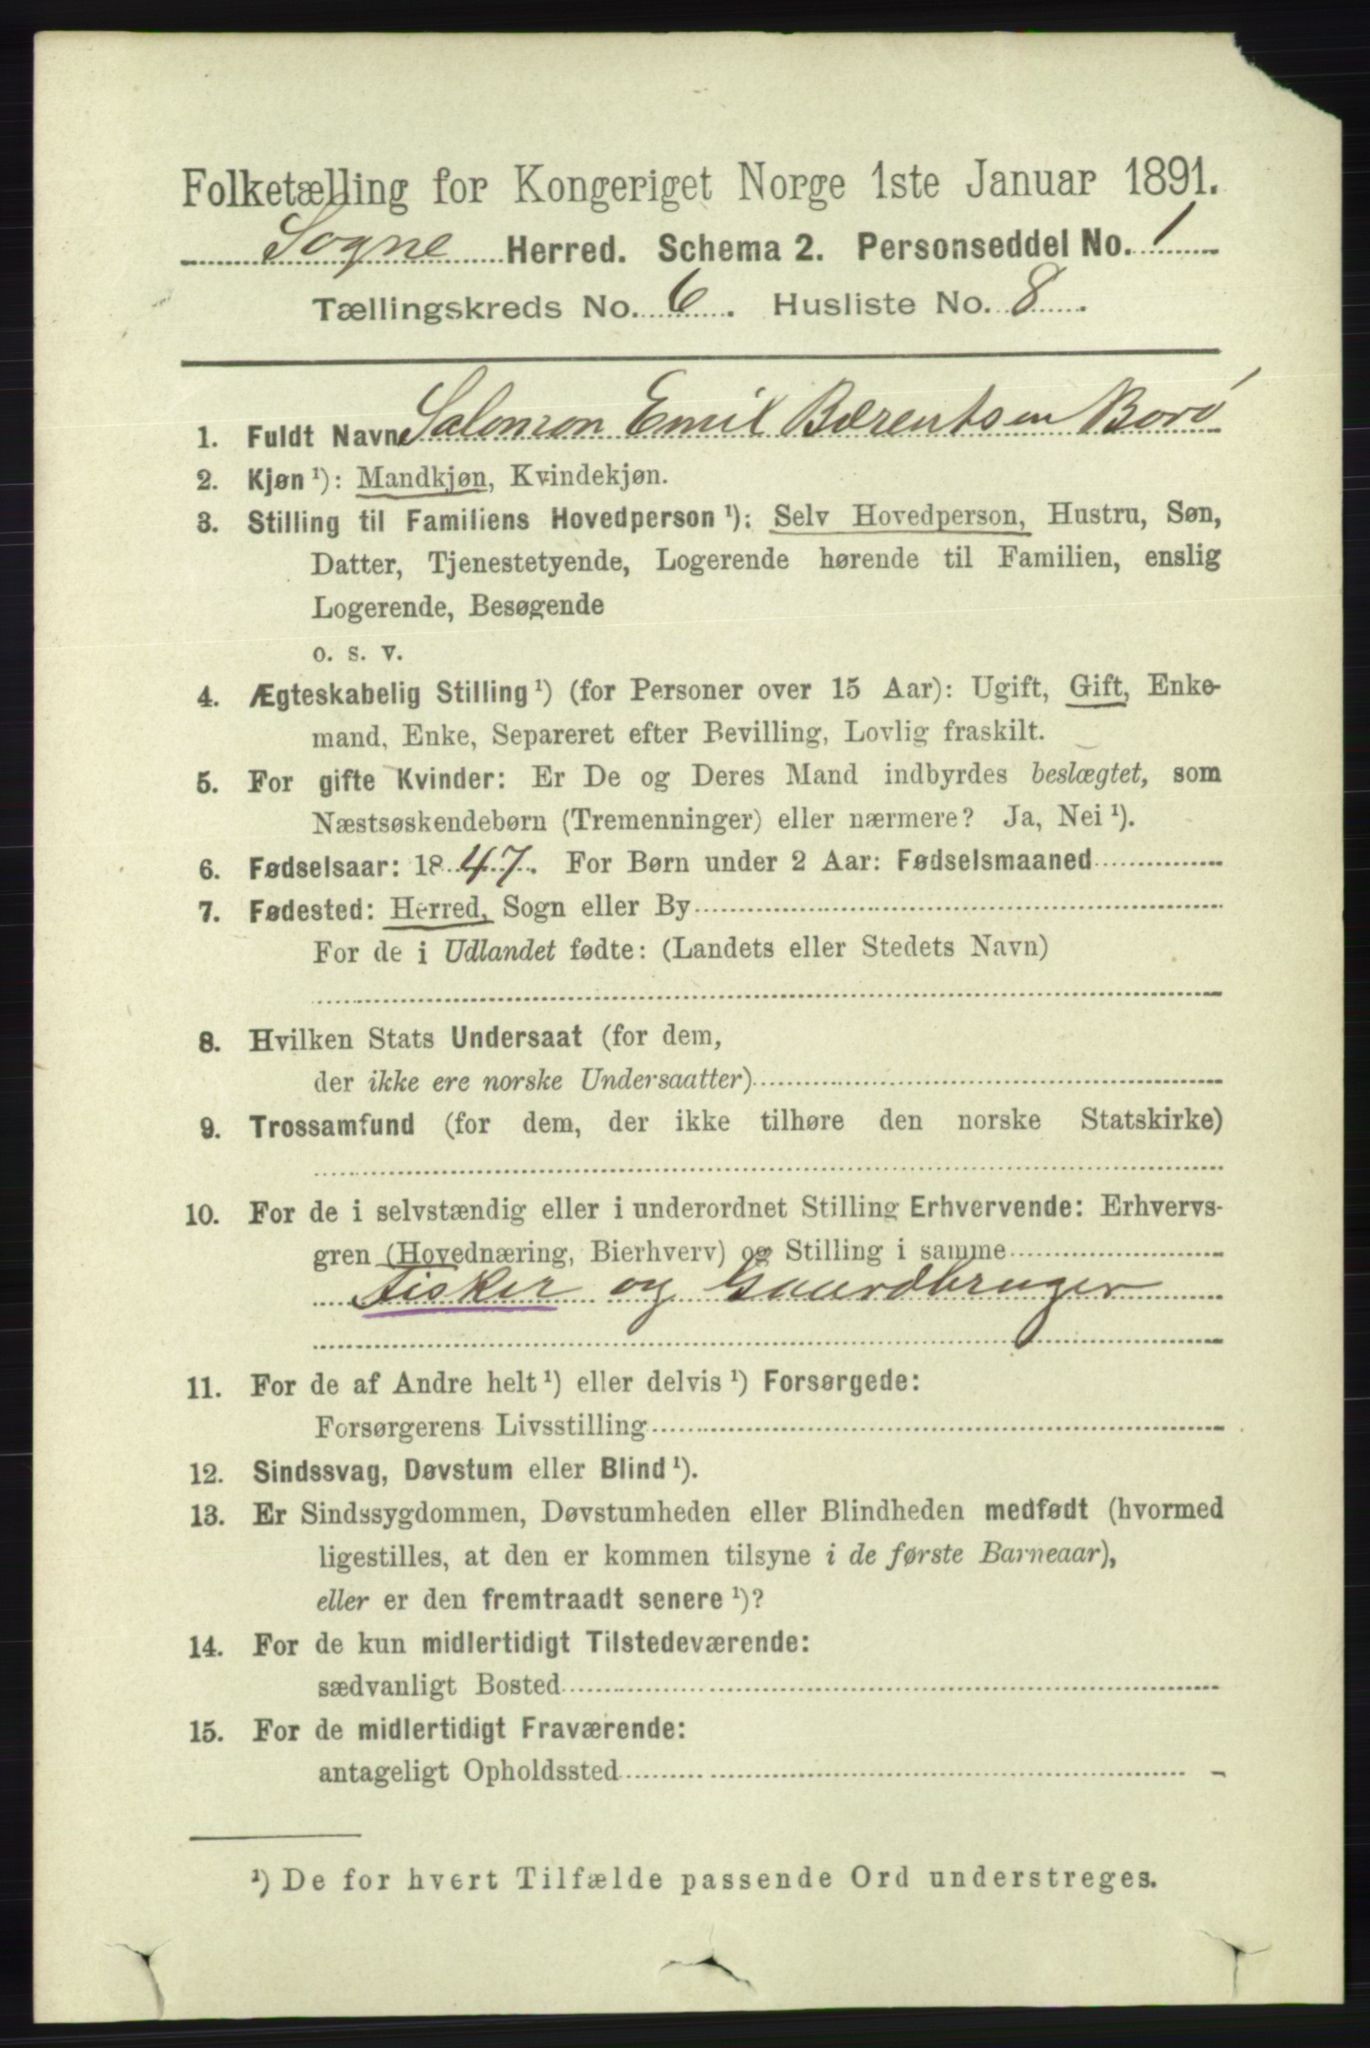 Folketælling for Kongeriget Norge 1ste Januar 1891.
Sogne Herred. Schema 2. Personseddel No. 1
Tællingskreds No. 6. Husliste No. 8.
1. Fuldt Navn Salomon Emil Bærentsen Borø
2. Kjøn ¹): Mandkjøn, Kvindekjøn.
3. Stilling til Familiens Hovedperson ¹): Selv Hovedperson, Hustru, Søn,
Datter, Tjenestetyende, Logerende hørende til Familien, enslig
Logerende, Besøgende
o. s. v.
4. Ægteskabelig Stilling ¹) (for Personer over 15 Aar): Ugift, Gift, Enke-
mand, Enke, Separeret efter Bevilling, Lovlig fraskilt.
5. For gifte Kvinder: Er De og Deres Mand indbyrdes beslægtet, som
Næstsøskendebørn (Tremenninger) eller nærmere? Ja, Nei ¹).
6. Fødselsaar: 1847. For Børn under 2 Aar: Fødselsmaaned
7. Fødested: Herred, Sogn eller By
For de i Udlandet fødte: (Landets eller Stedets Navn)
8. Hvilken Stats Undersaat (for dem,
der ikke ere norske Undersaatter)
9. Trossamfund (for dem, der ikke tilhøre den norske Statskirke)
10. For de i selvstændig eller i underordnet Stilling Erhvervende: Erhvervs-
gren (Hovednæring, Bierhverv) og Stilling i samme
Fisker og Gaardbruger
11. For de af Andre helt ¹) eller delvis ¹) Forsørgede:
Forsørgerens Livsstilling
12. Sindssvag, Døvstum eller Blind ¹).
13. Er Sindssygdommen, Døvstumheden eller Blindheden medfødt (hvormed
ligestilles, at den er kommen tilsyne i de første Barneaar),
eller er den fremtraadt senere ¹)?
14. For de kun midlertidigt Tilstedeværende:
sædvanligt Bosted
15. For de midlertidigt Fraværende:
antageligt Opholdssted
¹) De for hvert Tilfælde passende Ord understreges.